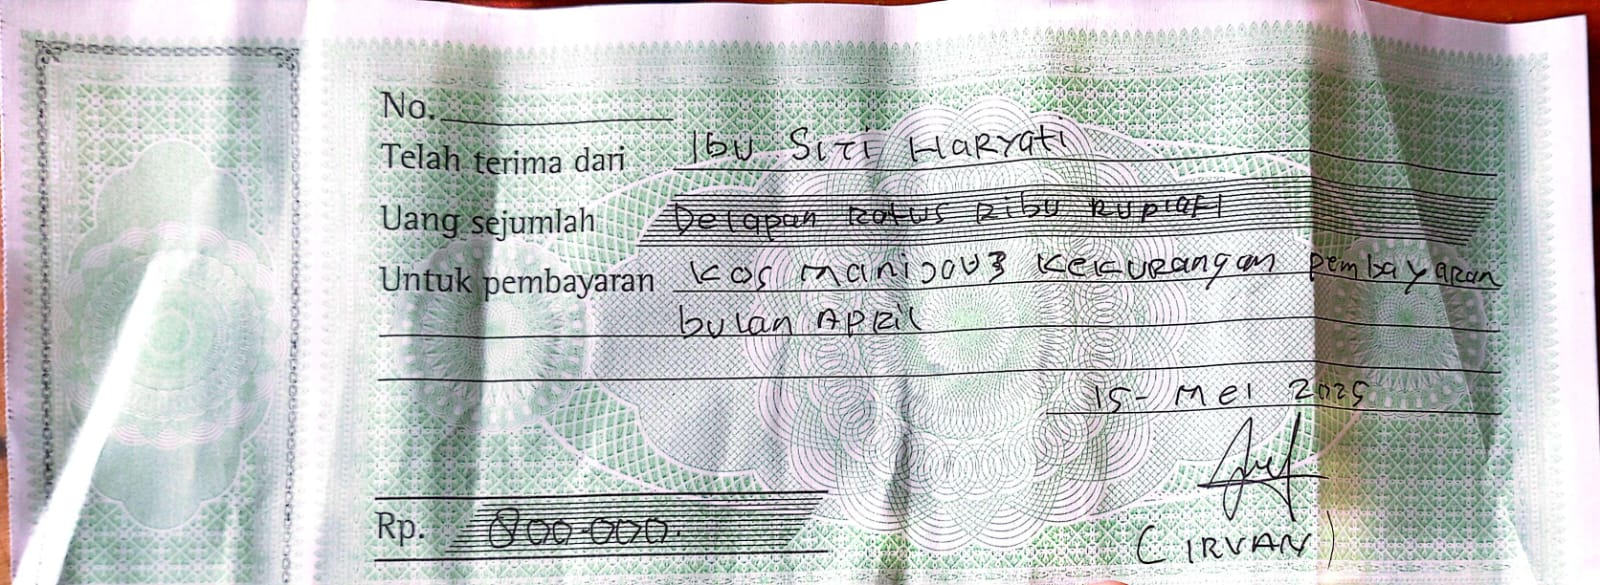 No.
Telah terima dari Ibu Siti Haryati
Uang sejumlah Delapan Ratus Ribu Rupiah
Untuk pembayaran Kos Kekurangan pembayaran
bulan April
15 - Mei 2025
Rp. 800.000.
(IRVAN)